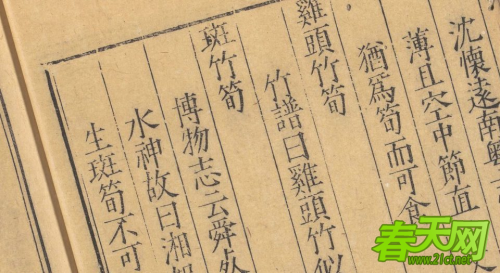 沈懷遠南粵
薄且空中節直
猶爲筍而可食
雞頭竹筍
竹譜曰雞頭竹似
斑竹筍
博物志云舜
水神故曰湘
生斑筍不可
春天网
www.21ct.net